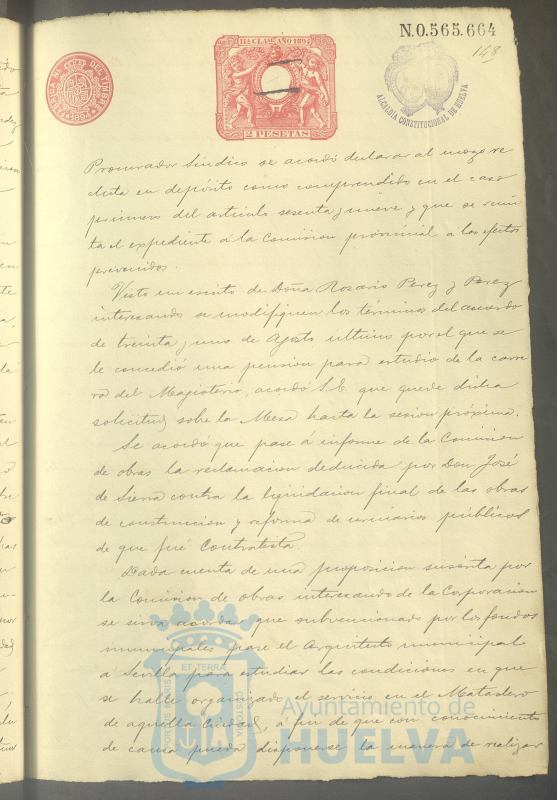 N.0.565.664
148
11ª CLASE AÑO 1894
2 PESETAS
FABRICA NAL DEL TIMBRE
ALCALDIA CONSTITUCIONAL DE HUELVA
Procurador Síndico se acordó declarar al mozo re
cluta en depósito como comprendido en el caso
primero del artículo sesenta y nueve y que se remi
ta el expediente á la Comision provincial a los efectos
prevenidos.
Visto un escrito de Doña Rosario Perez y Perez
interesando se modifiquen los términos del acuerdo
de treinta y uno de Agosto último por el que se
le concedió una pension para estudio de la carre
ra del Magisterio, acordó S.E. que quede dicha
solicitud sobre la Mesa hasta la sesion próxima.
Se acordó que pase á informe de la Comision
de obras la reclamacion deducida por Don José
de Sierra contra la liquidacion final de las obras
de construccion y reforma de urinarios públicos
de que fué Contratista.
Dada cuenta de una proposicion suscrita por
la Comision de obras interesando de la Corporacion
se sirva acordar que subvencionado por los fondos
municipales pase el Arquitecto municipal
á Sevilla para estudiar las condiciones en que
se halla organizado el servicio en el Matadero
de aquella Ciudad, á fin de que con conocimiento
de causa pueda disponerse la manera de realizar
Ayuntamiento de
HUELVA